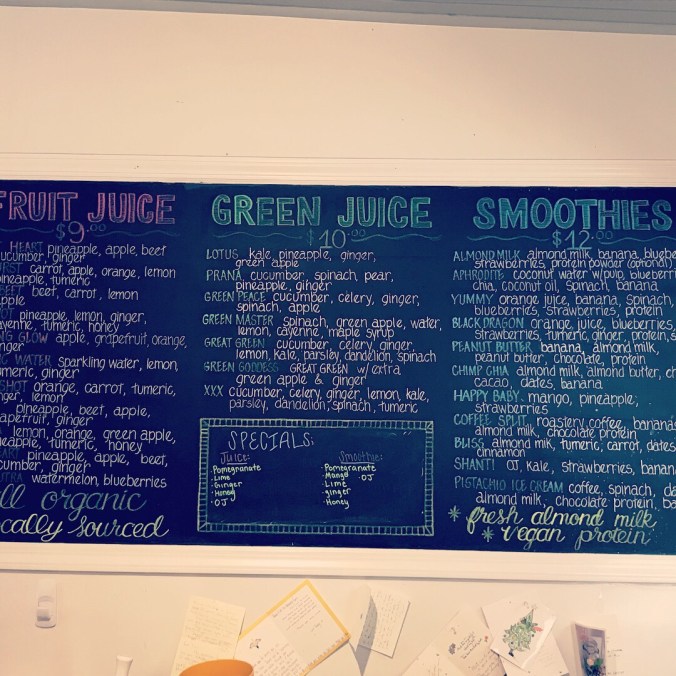 FRUIT JUICE
$9.00
HEART pineapple, apple, beet
cucumber, ginger
carrot, apple, orange, lemon
pineapple, tumeric
BEET beet, carrot, lemon
apple
pineapple, lemon, ginger,
cayenne, tumeric, honey
GLOW apple, grapefruit, orange,
ginger
WATER sparkling water, lemon,
tumeric, ginger
SHOT orange, carrot, tumeric,
ginger, lemon
pineapple, beet, apple,
grapefruit, ginger
lemon, orange, green apple,
pineapple, tumeric, honey
pineapple, apple, beet,
cucumber, ginger
watermelon, blueberries
all organic
locally sourced
GREEN JUICE
$10.00
LOTUS kale, pineapple, ginger,
green apple
PRANA cucumber, spinach, pear,
pineapple, ginger
GREEN PEACE cucumber, celery, ginger,
spinach, apple
GREEN MASTER spinach, green apple, water,
lemon, cayenne, maple syrup
GREAT GREEN cucumber, celery, ginger,
lemon, kale, parsley, dandelion, spinach
GREEN GODDESS GREAT GREEN w/ extra
green apple & ginger
XXX cucumber, celery, ginger, lemon, kale,
parsley, dandelion, spinach, tumeric
SPECIALS:
Juice:
Pomegranate
Lime
Ginger
Honey
OJ
Smoothie:
Pomegranate
Mango OJ
Lime
ginger
Honey
SMOOTHIES
$12.00
ALMOND MILK almond milk, banana, bluebe
strawberries, protein powder (optional)
APHRODITE coconut water w/pulp, blueberri
chia, coconut oil, spinach, banana
YUMMY orange juice, banana, spinach,
blueberries, strawberries, protein
BLACK DRAGON orange juice, blueberries,
strawberries, tumeric, ginger, protein, s
PEANUT BUTTER banana, almond milk,
peanut butter, chocolate, protein
CHIMP CHIA almond milk, almond butter, ch
cacao, dates, banana
HAPPY BABY mango, pineapple,
strawberries
COFFEE SPLIT roastery coffee, banana
almond milk, chocolate protein
BLISS almond milk, tumeric, carrot, dates
cinnamon
SHANTI OJ, kale, strawberries, banan
PISTACHIO ICE CREAM coffee, spinach, da
almond milk, chocolate protein, ba
* fresh almond milk
* vegan protein